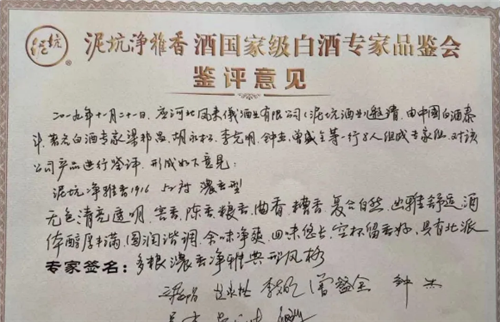 泥坑
泥坑净雅香酒国家级白酒专家品鉴会
鉴评意见
二〇一九年十一月二十一日，应河北凤来仪酒业有限公司（泥坑酒业）邀请，由中国白酒泰
斗、著名白酒专家梁邦昌、胡永松、李克明、钟杰、曾盛全等一行8人组成专家组，对该
公司产品进行鉴评，形成如下意见：
泥坑净雅香1916 52度 浓香型
无色清亮透明，窖香、陈香、粮香、曲香、糟香、复合自然，幽雅舒适，酒
体醇厚丰满，圆润谐调，余味净爽，回味悠长，空杯留香好，具有北派
多粮浓香净雅典型风格
专家签名：
梁邦昌 胡永松 李克明 曾盛全 钟杰